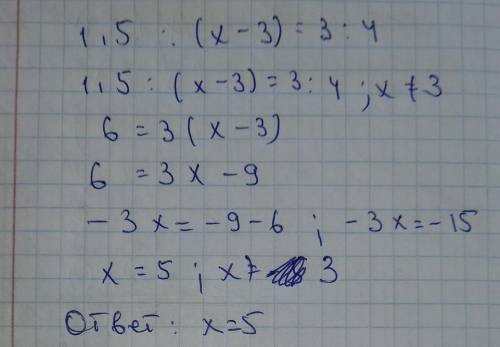 1,5 : (x-3) = 3 : 4
1,5 : (x-3) = 3 : 4 ; x ≠ 3
6 = 3 (x-3)
6 = 3x - 9
-3x = -9-6 ; -3x = -15
x = 5 ; x ≠ 3
Ответ : x=5